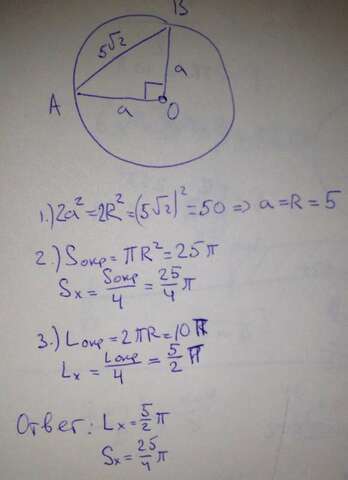 B
5√2
a
A
a
O
1.) 2a² = 2R² = (5√2)² = 50 => a = R = 5
2.) Sокр = πR² = 25π
Sx = Sокр/4 = 25/4 π
3.) Lокр = 2πR = 10π
Lx = Lокр/4 = 5/2 π
Ответ: Lx = 5/2 π
Sx = 25/4 π